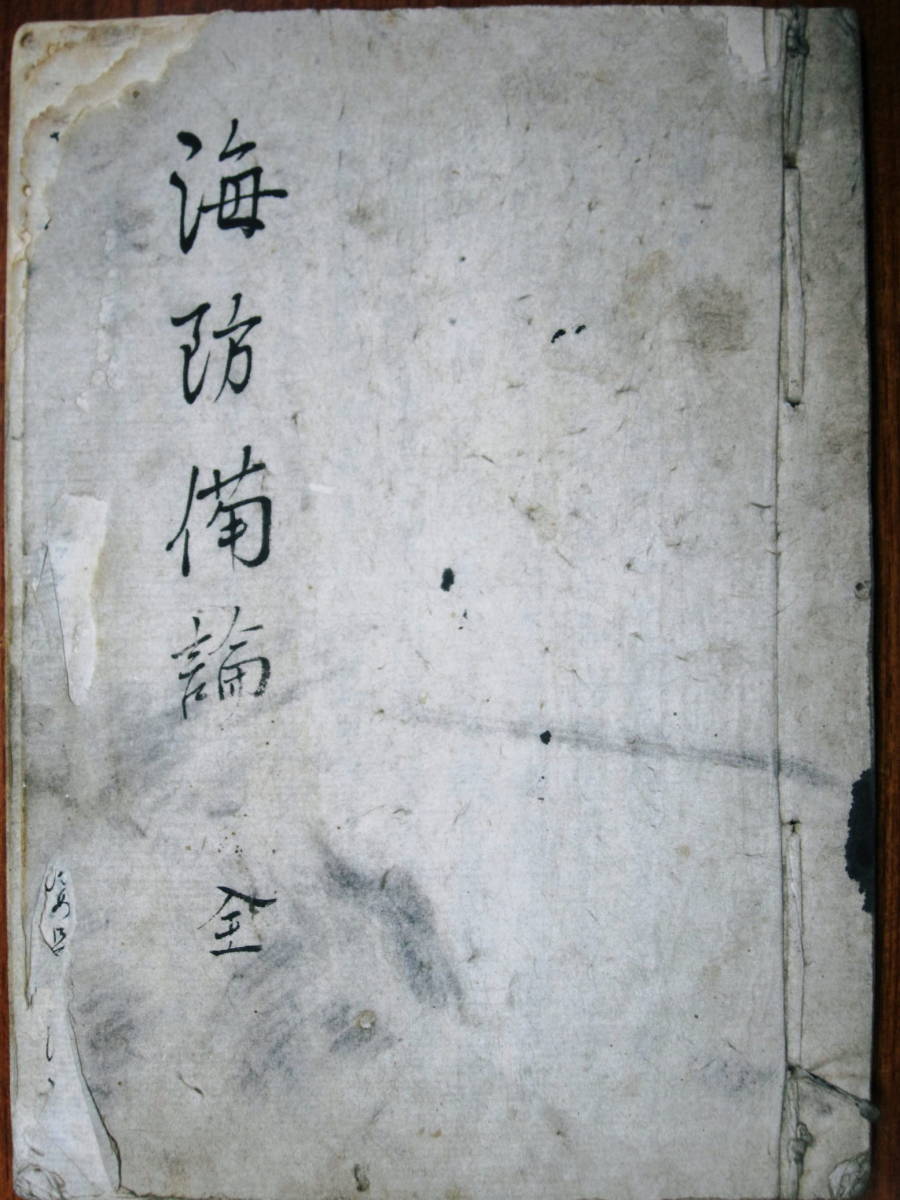 海防備論
全